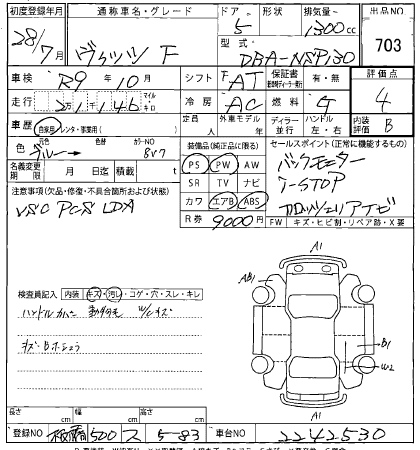 初度登録年月 通称車名・グレード ドア 形状 排気量 出品NO
28/7月 ヴィッツ F 5 1300cc 703
型式 DBA-NSP130
車検 R9年10月 シフト FAT 保証書 有・無 評価点 4
走行 2万1千146 マイル キロ 冷房 AC 燃料 G 内装 B
車歴 自家用・レンタ・事業用( ) 定員 人 外車モデル 年 ディーラー 並行 ハンドル 左・右
色 ブルー カラーNO 8V7
装備品(純正品に限る) セールスポイント(正常に機能するもの)
名義変更期限 月 日迄 積載 t
PS PW AW バックモニター
SR TV ナビ I-STOP
注意事項(欠品・修復・不具合箇所および状態)
カワ エアB ABS カロッツェリアナビ
VSC PCS LDA
R券 9000円 FW キズ・ヒビ割・リペア跡・X要
検査員記入 内装 キズ・汚レ・コゲ・穴・スレ・キレ
ハンドルカバー
キズ・B
A1
AB1
B1
W2
A1
長さ cm 幅 cm 高さ cm
登録NO 板橋 500 ス 5-83 車台NO 2242530